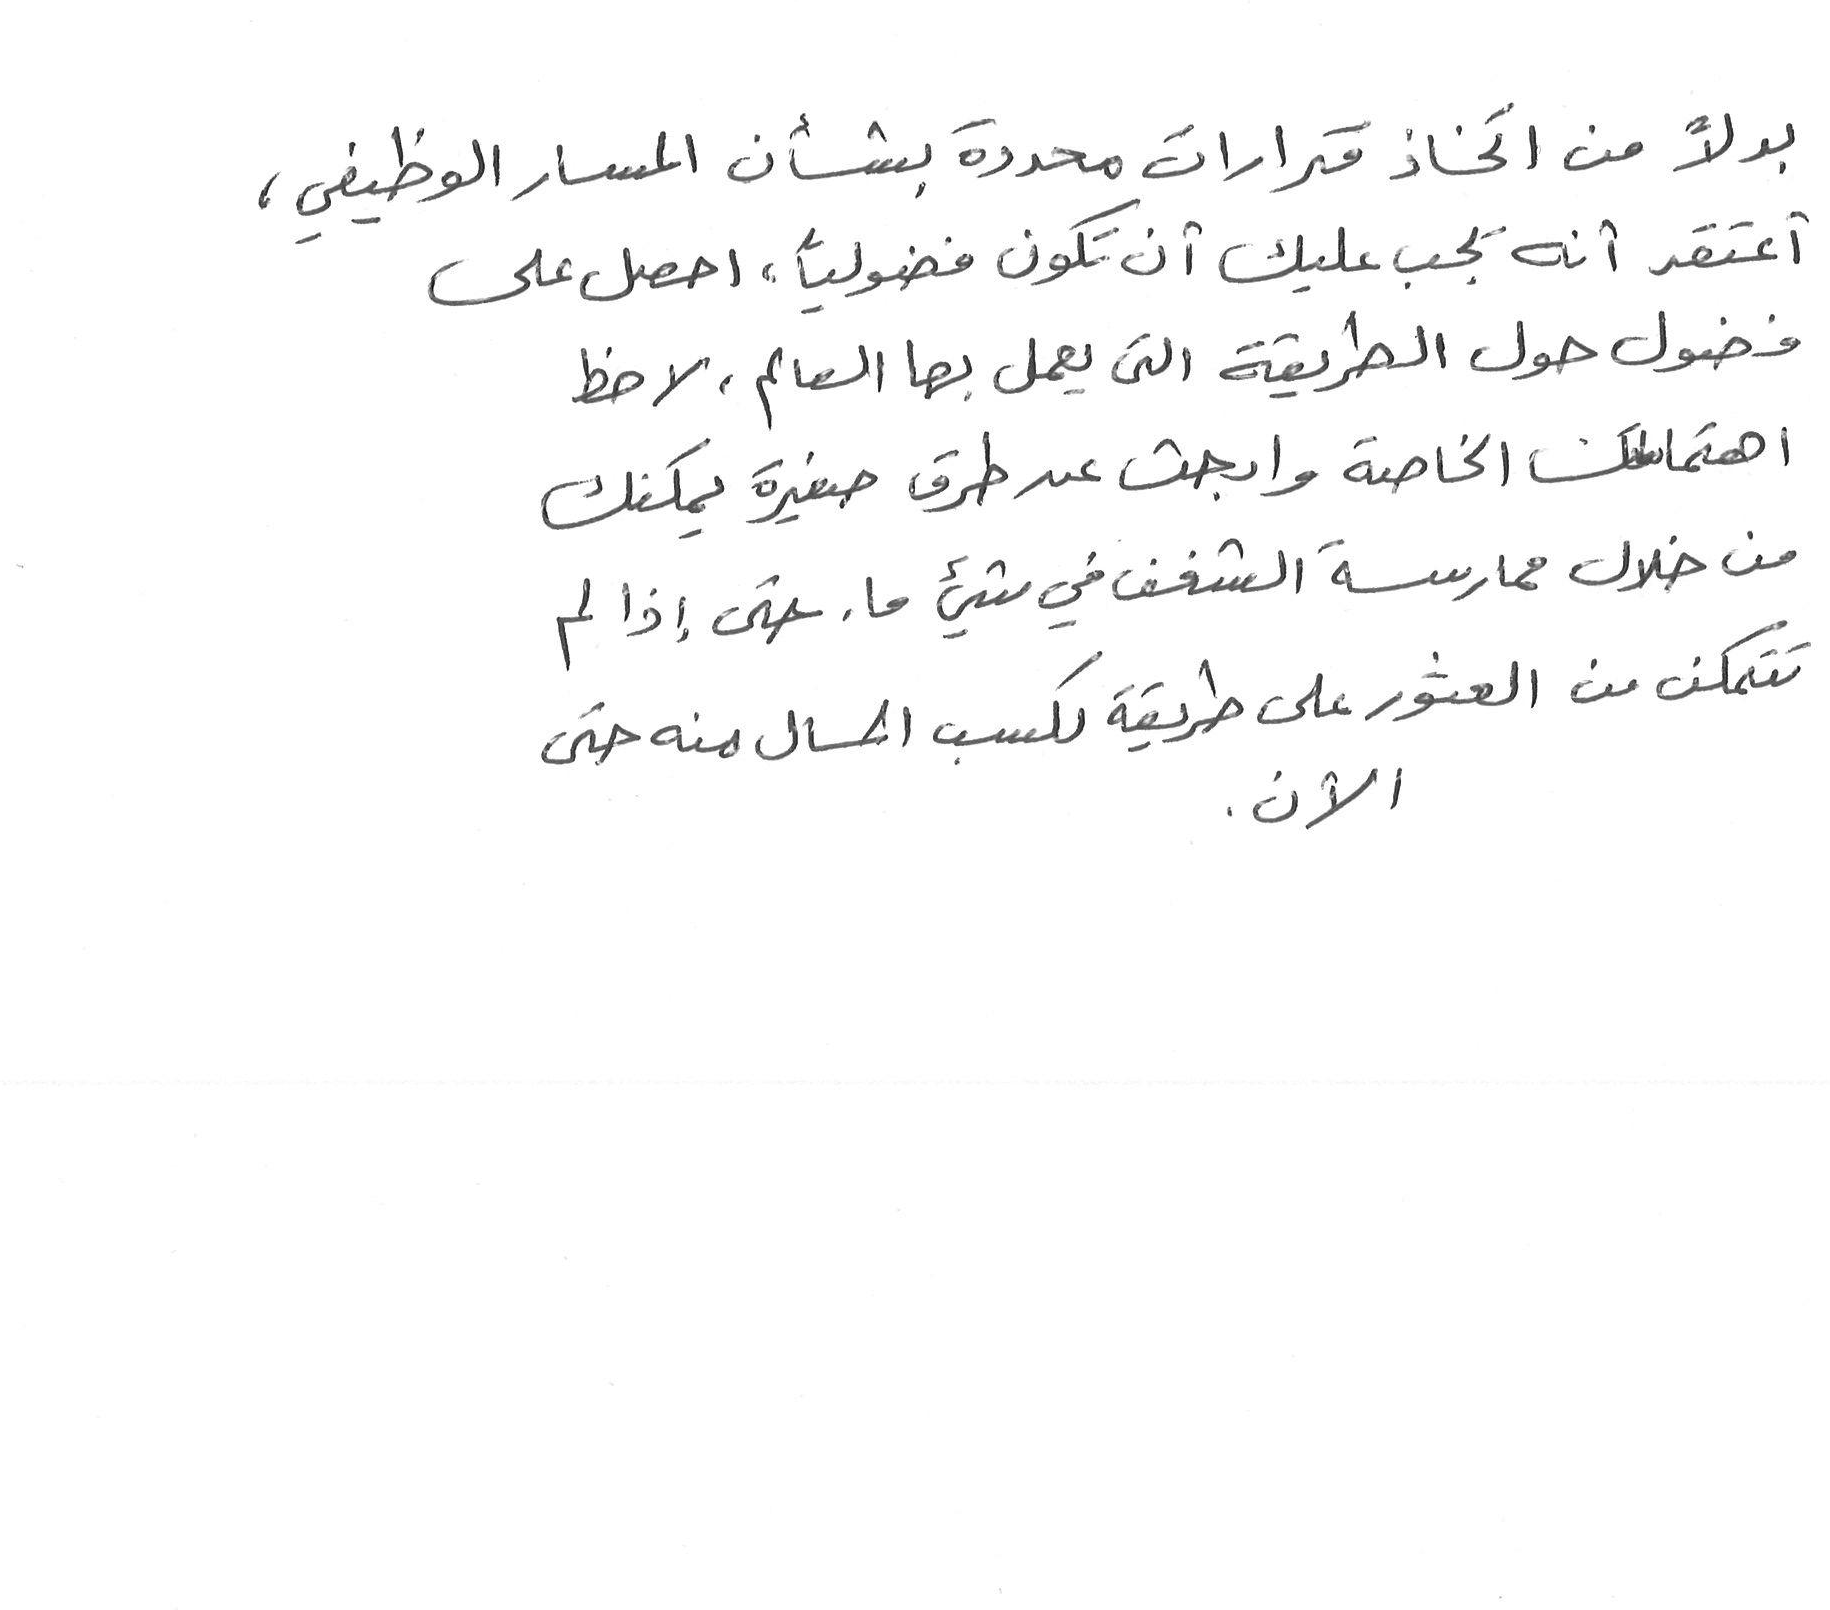 بدلاً من اتخاذ قرارات محددة بشأن المسار الوظيفي،
أعتقد أنه يجب عليك أن تكون فضولياً، احصل على
فضول حول الطريقة التى يعمل بها العالم، لاحظ
الخاصة وابحث عن طرق صغيرة يمكنك
من خلال ممارسة الشغف في شيئ ما. حتى إذا لم
تتمكن من العثور على طريقة لكسب المال منه حتى
الآن.